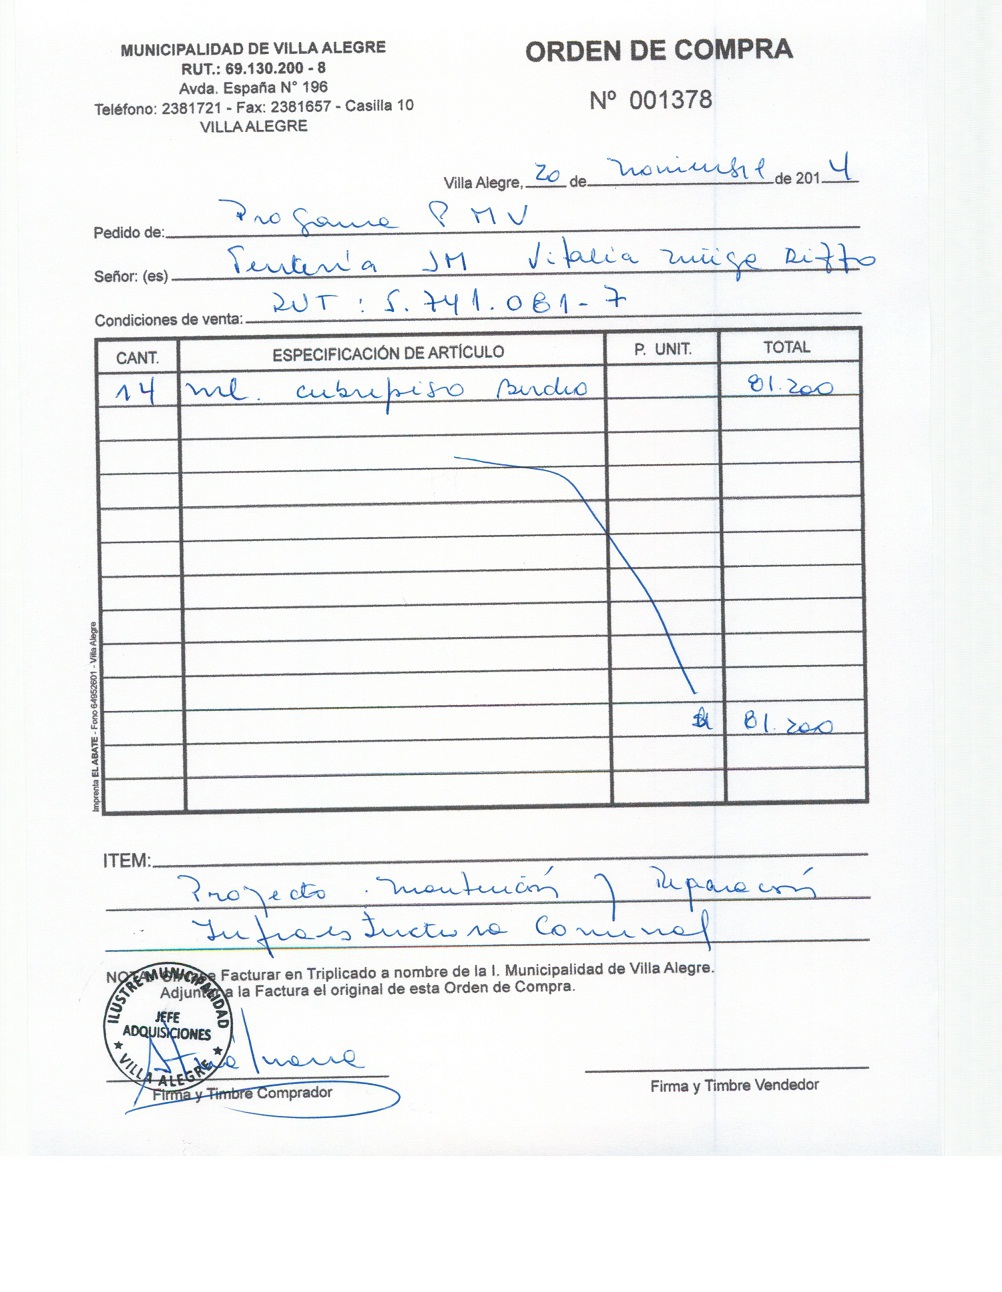 MUNICIPALIDAD DE VILLA ALEGRE
RUT.: 69.130.200 - 8
Avda. España N° 196
Teléfono: 2381721 - Fax: 2381657 - Casilla 10
VILLA ALEGRE
ORDEN DE COMPRA
Nº 001378
Villa Alegre, 20 de noviembre de 2014
Pedido de: Programa PMV
Señor: (es) JM Vitalia Zuñiga
RUT : 5.741.081-7
Condiciones de venta:
CANT. ESPECIFICACIÓN DE ARTÍCULO P. UNIT. TOTAL
14 ml. cubrepiso 81.200
81.200
Imprenta EL ABATE - Fono 64952601 - Villa Alegre
ITEM:
Proyecto mantención y Reparación
Infraestructura Comunal
Facturar en Triplicado a nombre de la I. Municipalidad de Villa Alegre.
Adjuntar a la Factura el original de esta Orden de Compra.
ILUSTRE MUNICIPALIDAD
JEFE
ADQUISICIONES
VILLA ALEGRE
Firma y Timbre Comprador
Firma y Timbre Vendedor